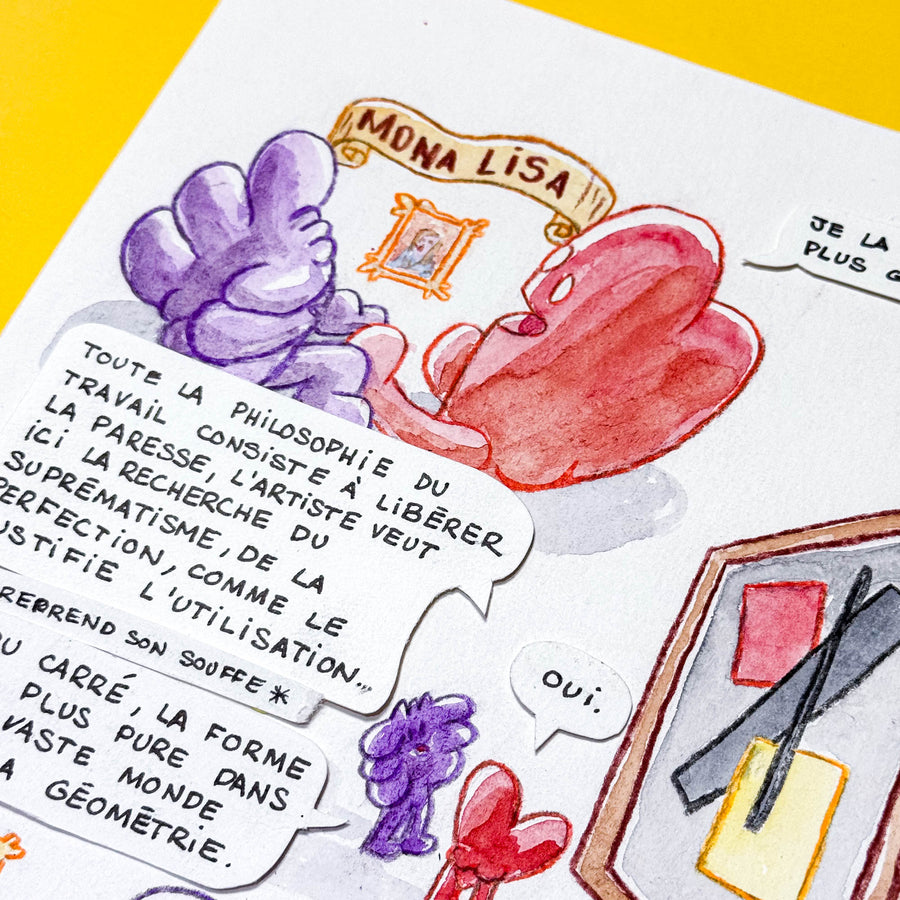 MONA LISA
JE LA
PLUS
TOUTE LA PHILOSOPHIE DU
TRAVAIL CONSISTE À LIBÉRER
LA PARESSE, L'ARTISTE VEUT
ICI LA RECHERCHE DU
SUPRÉMATISME, DE LA
PERFECTION, COMME LE
L'UTILISATION...
REPREND SON SOUFFE*
CARRÉ, LA FORME
PLUS PURE DANS
VASTE MONDE
GÉOMÉTRIE.
OUI.